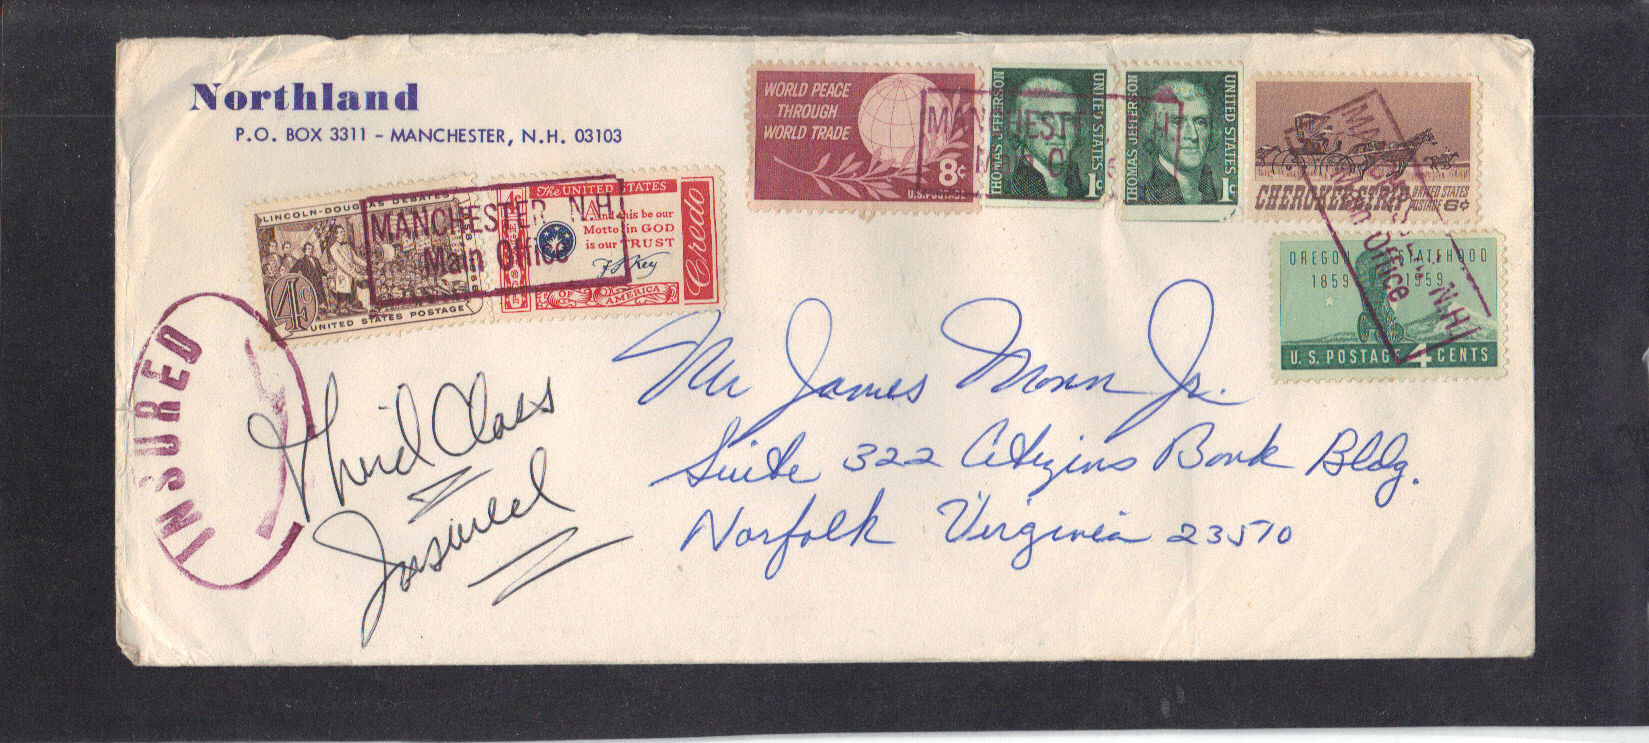 Northland
P.O. BOX 3311 - MANCHESTER, N.H. 03103
LINCOLN-DOUGLAS DEBATES
4¢
UNITED STATES POSTAGE
The UNITED STATES
And this be our
Motto in GOD
is our TRUST
F S Key
OF AMERICA
Credo
MANCHESTER, N.H.
Main Office
WORLD PEACE
THROUGH
WORLD TRADE
8¢
U.S. POSTAGE
THOMAS JEFFERSON
UNITED STATES
1¢
THOMAS JEFFERSON
UNITED STATES
1¢
CHEROKEE STRIP
UNITED STATES
POSTAGE 6¢
OREGON STATEHOOD
1859 1959
U.S. POSTAGE 4 CENTS
Main Office
INSURED
Third Class
Insured
Mr James Mann Jr.
Suite 322 Citizins Bank Bldg.
Norfolk Virginia 23510